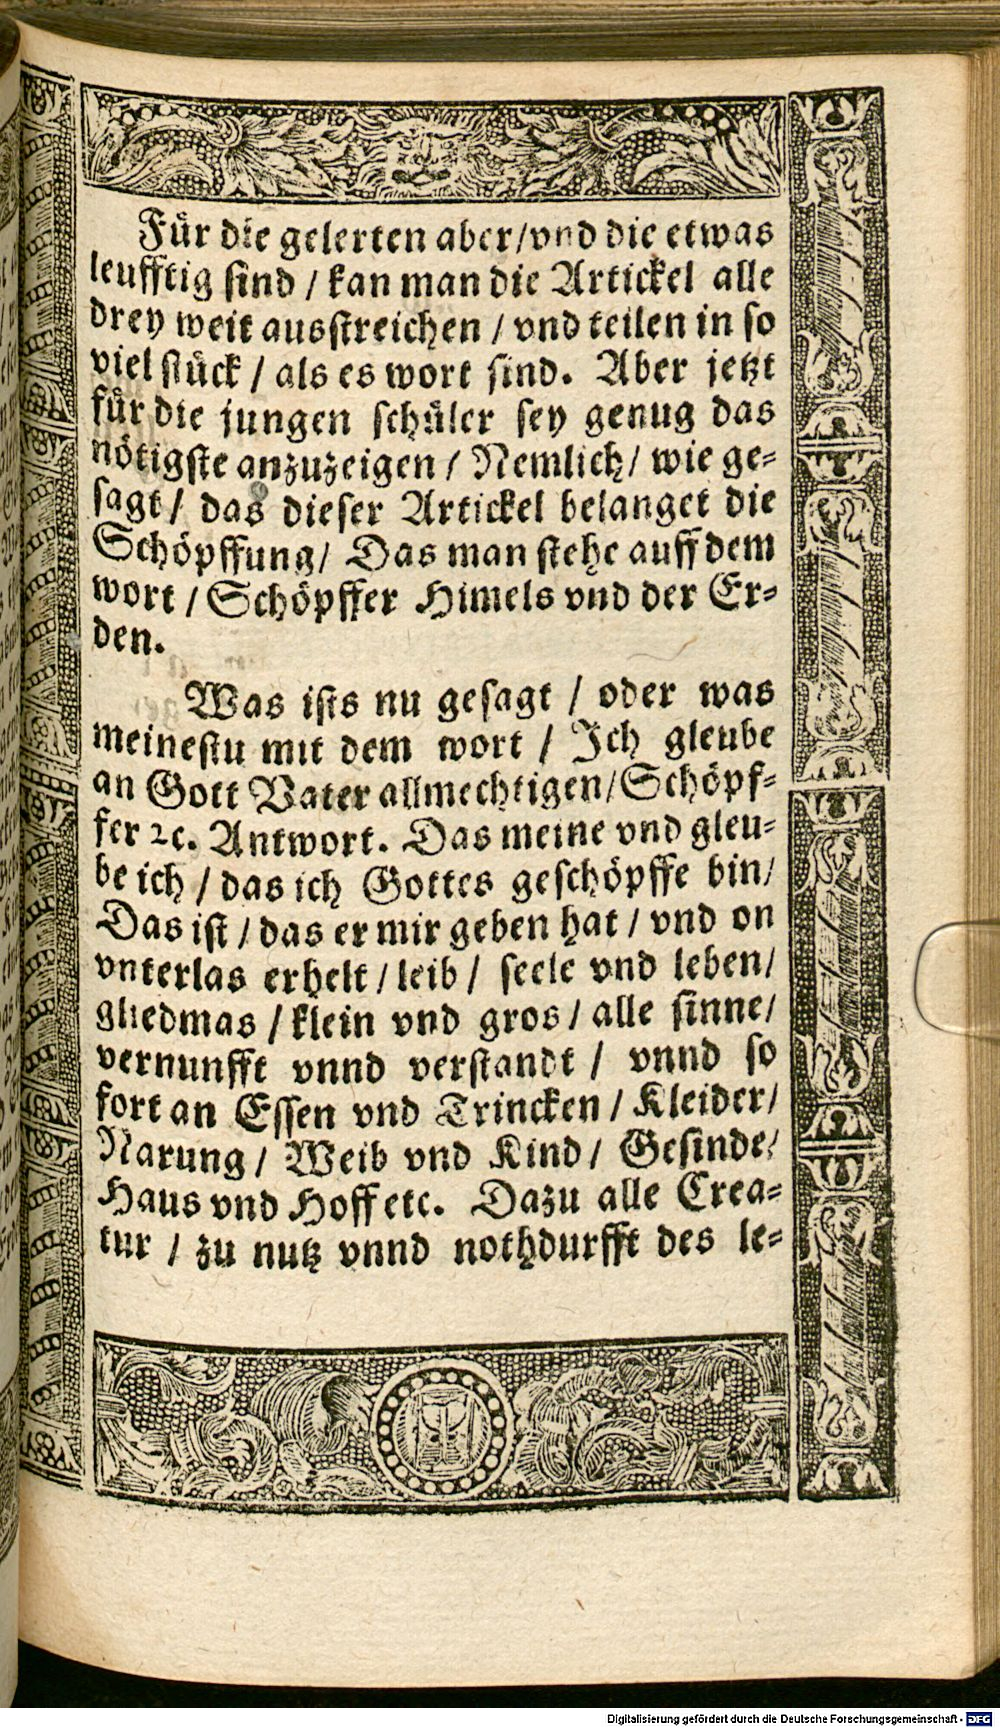 Für die gelerten aber/vnd die etwas
leufftig sind / kan man die Artickel alle
drey weit ausstreichen / vnd teilen in so
viel stück / als es wort sind. Aber jetzt
für die jungen schüler sey genug das
nötigste anzuzeigen / Nemlich/ wie ge=
sagt / das dieser Artickel belanget die
Schöpffung/ Das man stehe auff dem
wort / Schöpffer Himels vnd der Er=
den.
Was ists nu gesagt / oder was
meinestu mit dem wort / Ich gleube
an Gott Vater allmechtigen/Schöpf=
fer ꝛc. Antwort. Das meine vnd gleu=
be ich / das ich Gottes geschöpffe bin/
Das ist / das er mir geben hat / vnd on
vnterlas erhelt / leib / seele vnd leben/
gliedmas / klein vnd gros / alle sinne/
vernunfft vnnd verstandt / vnnd so
fort an Essen vnd Trincken / Kleider/
Narung / Weib vnd Kind / Gesinde/
Haus vnd Hoff etc. Dazu alle Crea=
tur / zu nutz vnnd nothdurfft des le=
Digitalisierung gefördert durch die Deutsche Forschungsgemeinschaft - DFG